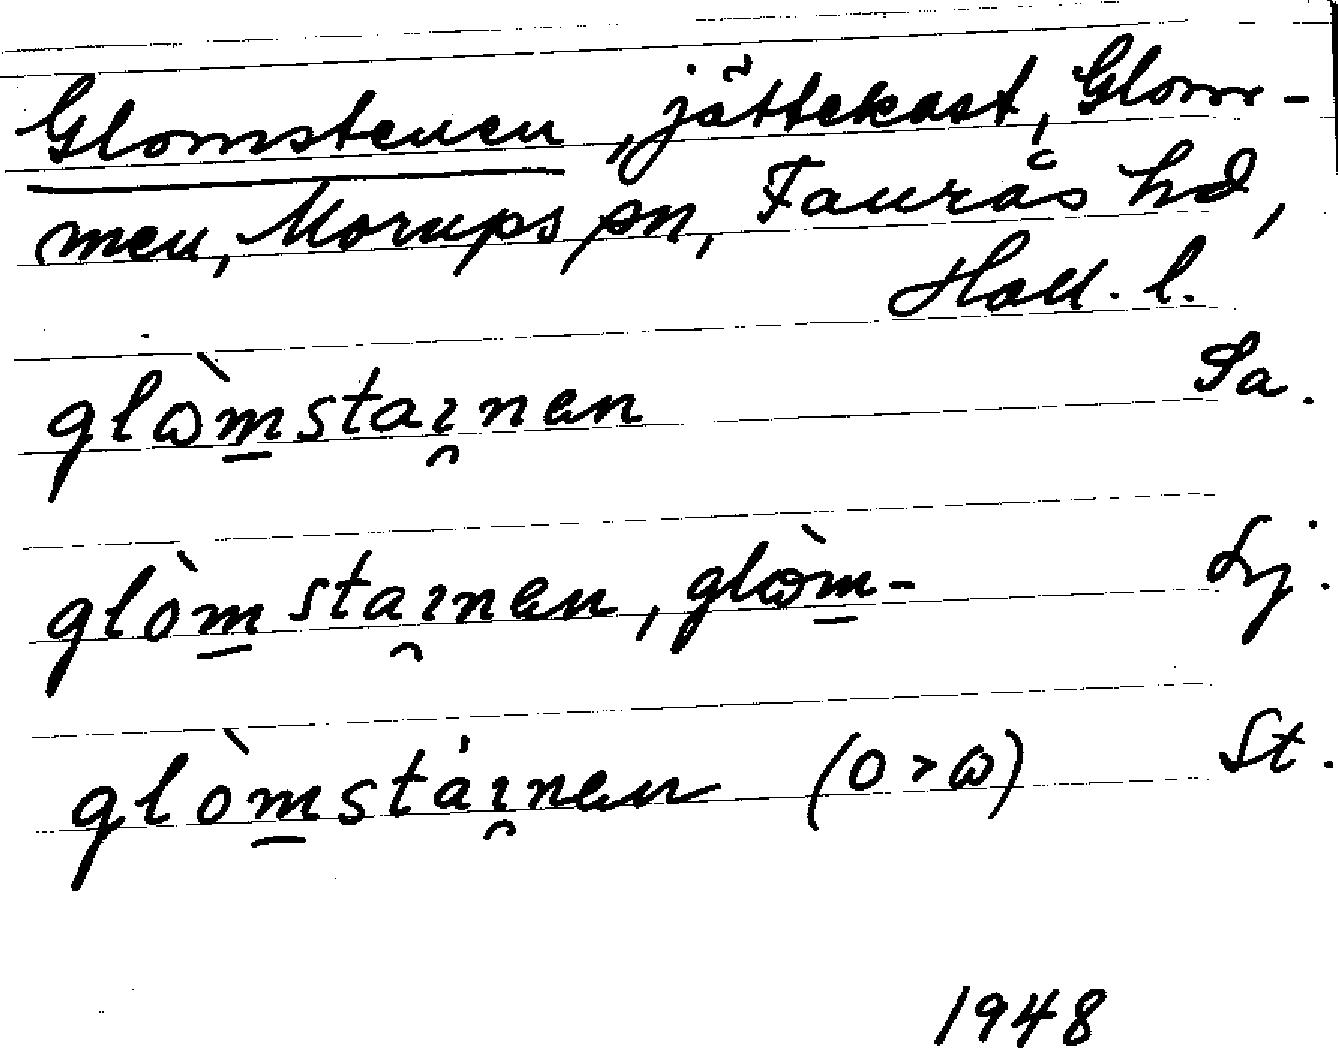 Glomstenen, jättekast, Glom-
men, Morups sn, Faurås hd,
Hall. l.
glɷ̀m̲staı̯nən Sa.
glòm̲staı̯nən, glɷ̀m̲- Lj.
glòm̲stáı̯nən (o > ɷ) St.
1948